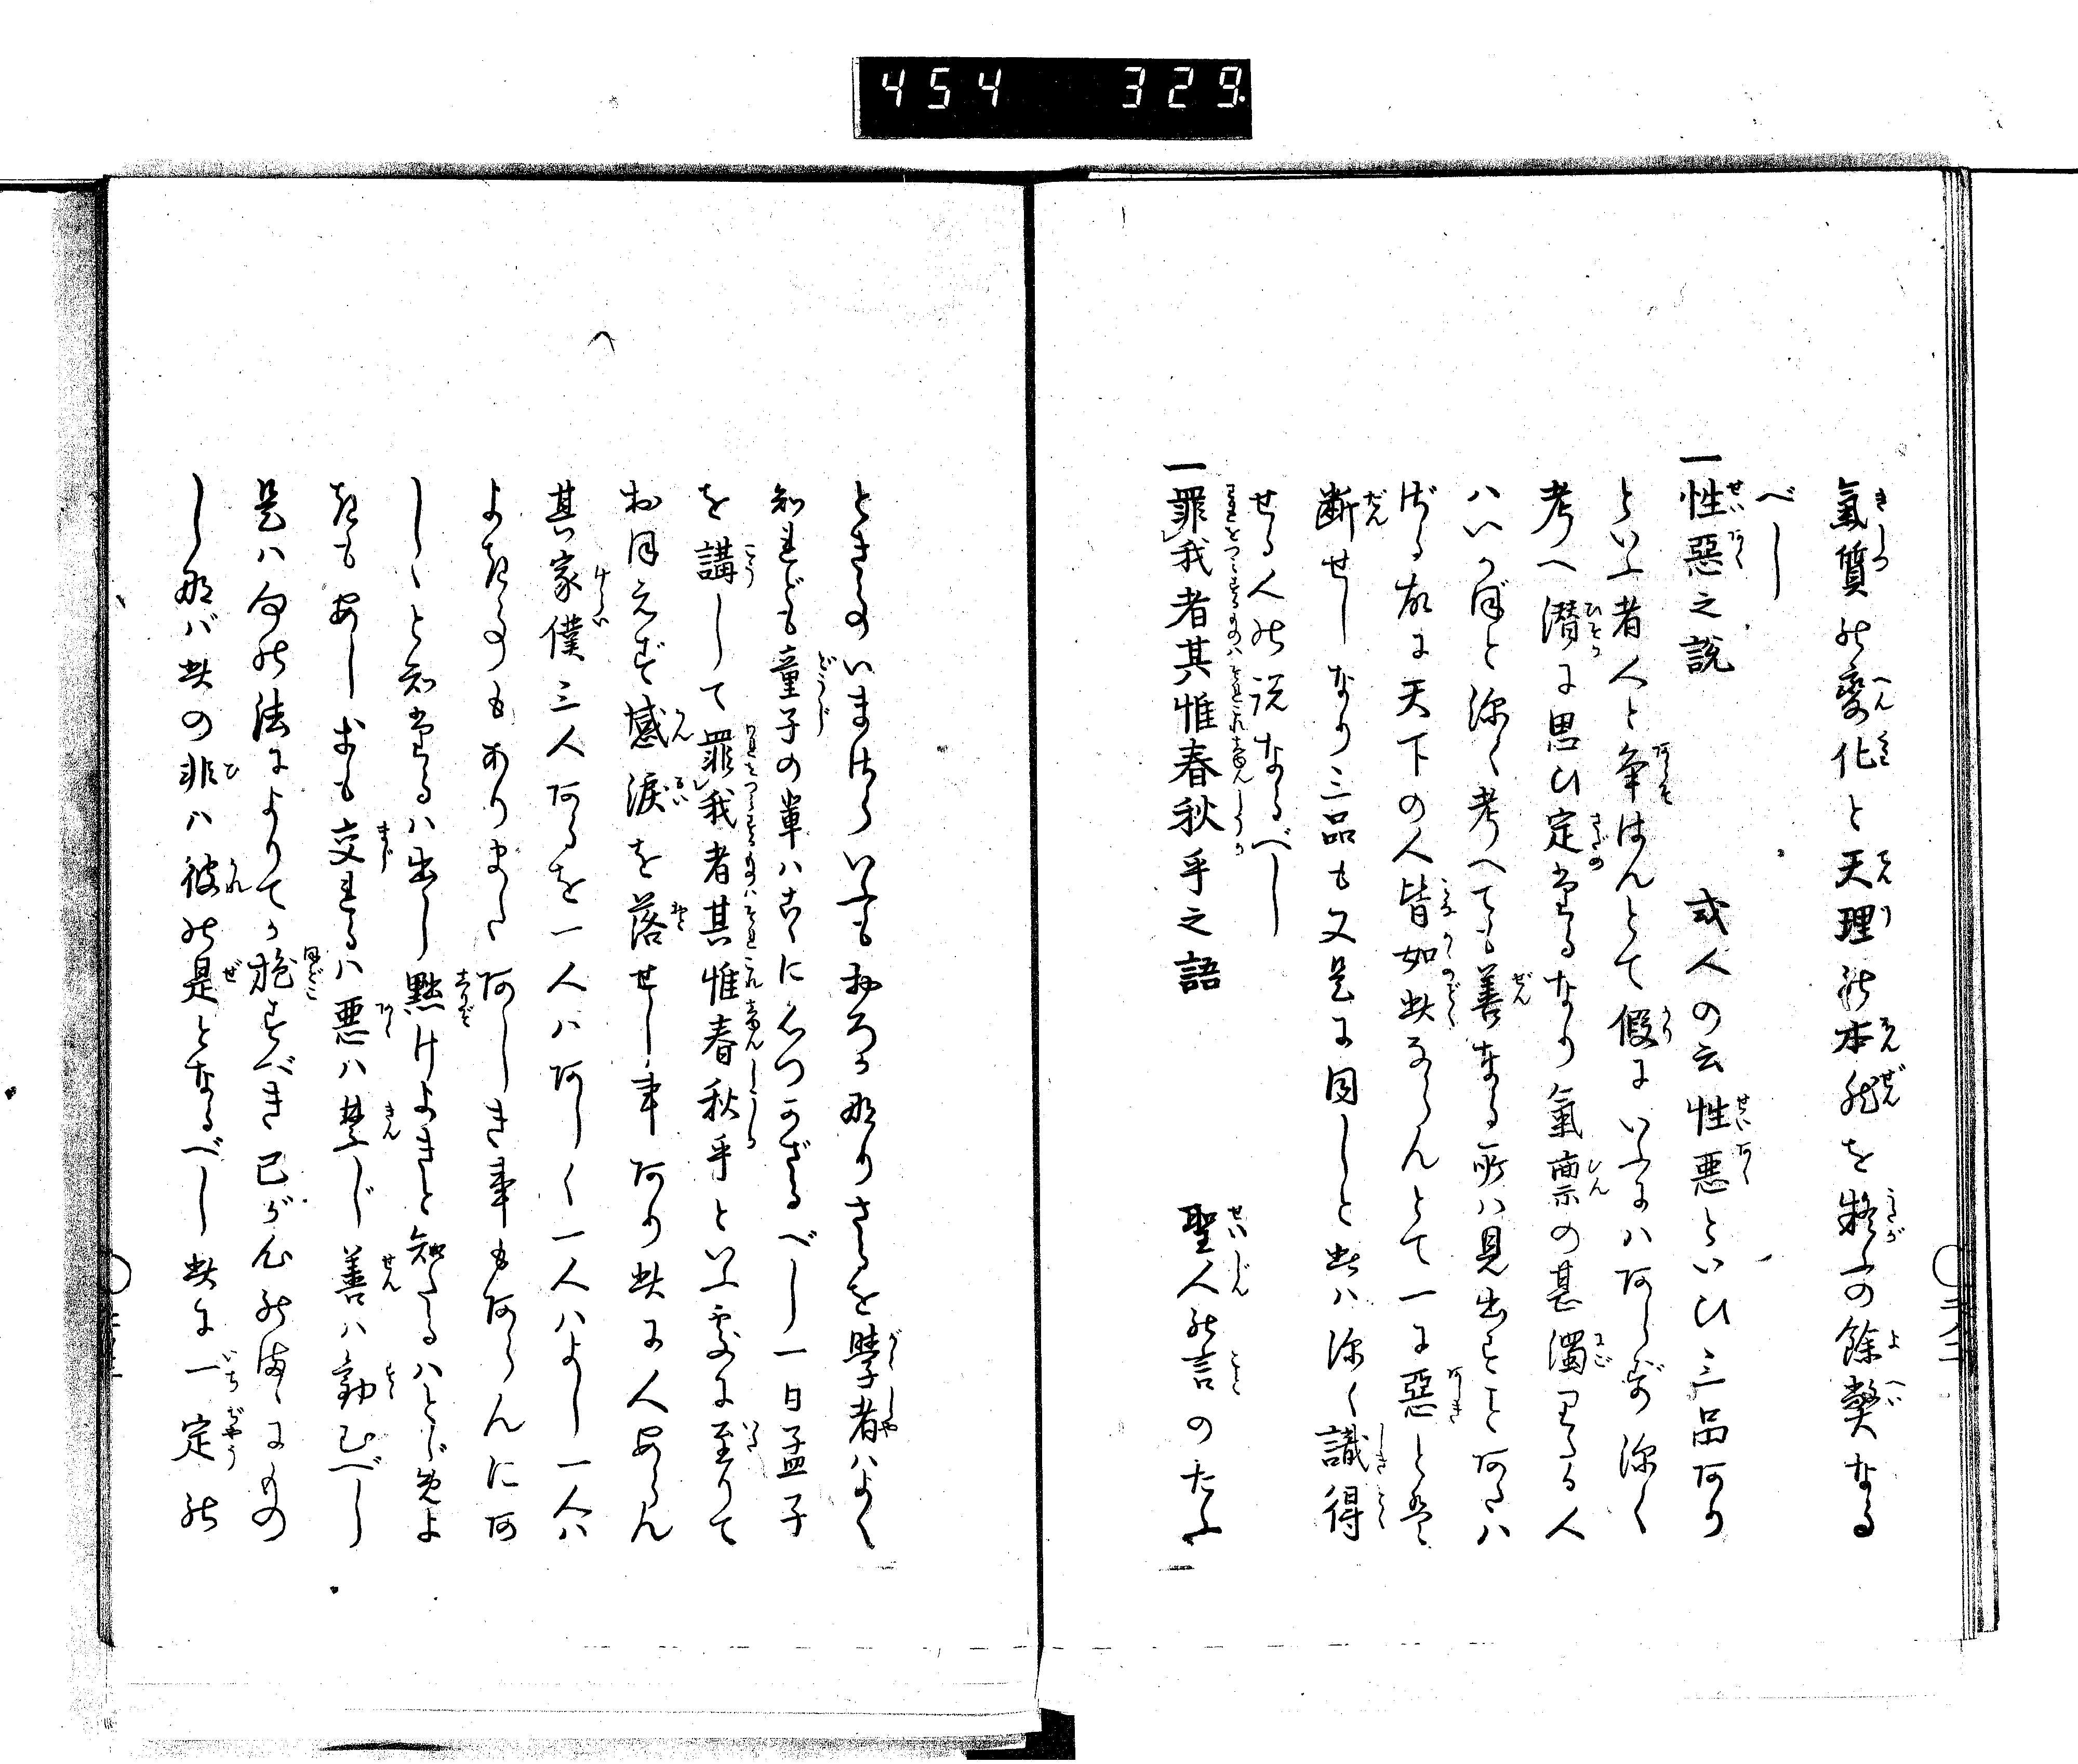 454 329
氣質の變化と天理の本然を疑ふの餘弊なる
べし
一性惡之説 或人の云性悪といひ三品あり
といふ者人と争はんとて假にいふにハあらず深く
考へ潜に思ひ定たるなり氣稟の甚濁りたる人
ハいかほと深く考へても善なる所ハ見出すことあたハ
ざる故に天下の人皆如此ならんとて一に惡と
断せしなり三品も又是に同しと此ハ深く識得
せる人の説なるべし
一罪我者其惟春秋乎之語 聖人の言のたふ
ときのいまけらいふもおろか那りさるを學者ハよく
知れども童子の輩ハ心つかざるべし一日孟子
を講して罪我者其惟春秋乎といふ處に至りて
おほえず感涙を落せし事あり此に人あらん
其家僕三人あるを一人ハあしく一人ハよし一人ハ
よき事もありまたあしき事もあらんにあ
しゝと知たるハ出し黜けよきと知たるハとゞめよ
きもあしきも交れるハ悪ハ禁じ善ハ勧むべし
是ハ何の法によりてか施すべき己が心のまゝにもの
し那バ此の非ハ彼の是となるべし此に一定の